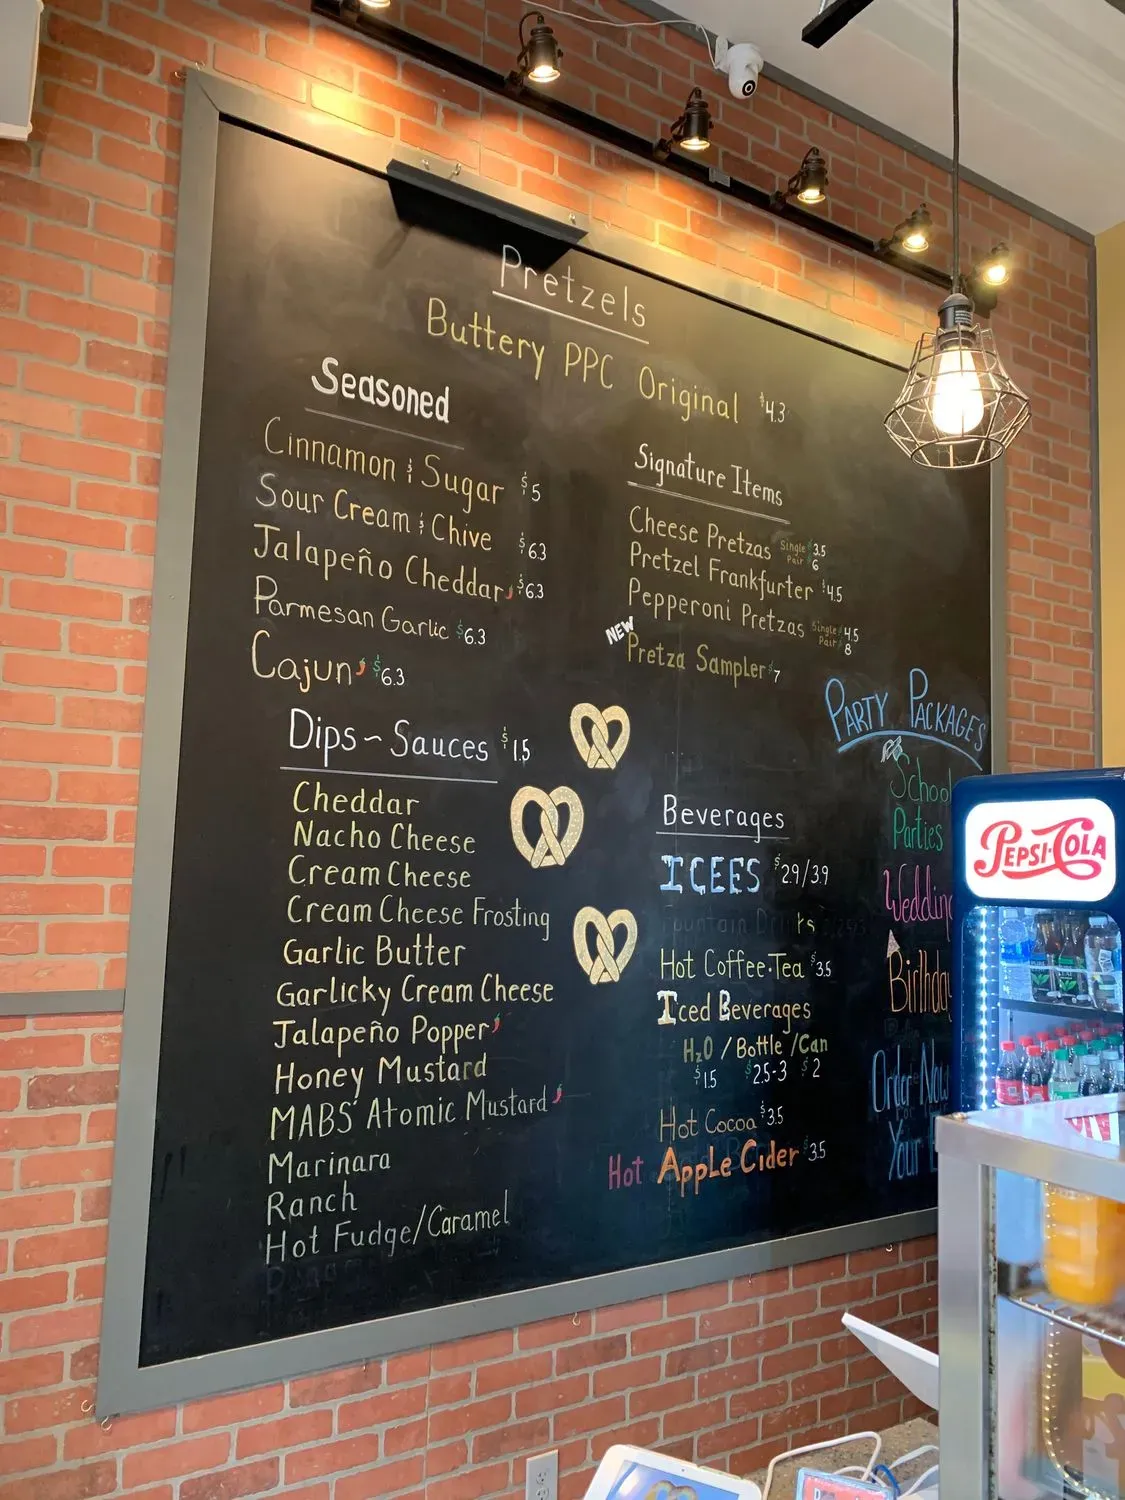 Pretzels
Buttery PPC Original $4.3
Seasoned
Cinnamon & Sugar $5
Sour Cream & Chive $6.3
Jalapeño Cheddar $6.3
Parmesan Garlic $6.3
Cajun $6.3
Signature Items
Cheese Pretzas Single $3.5
Pair $6
Pretzel Frankfurter $4.5
Pepperoni Pretzas Single $4.5
Pair $8
NEW
Pretza Sampler $7
Dips ~ Sauces $1.5
Cheddar
Nacho Cheese
Cream Cheese
Cream Cheese Frosting
Garlic Butter
Garlicky Cream Cheese
Jalapeño Popper
Honey Mustard
MABS' Atomic Mustard
Marinara
Ranch
Hot Fudge/Caramel
Beverages
ICEES $2.9/3.9
Fountain Drinks
Hot Coffee·Tea $3.5
Iced Beverages
H2O / Bottle / Can
$1.5 $2.5-3 $2
Hot Cocoa $3.5
Hot Apple Cider $3.5
Party Packages
School
Parties
Wedding
Birthday
Order Now
Your
PEPSI·COLA